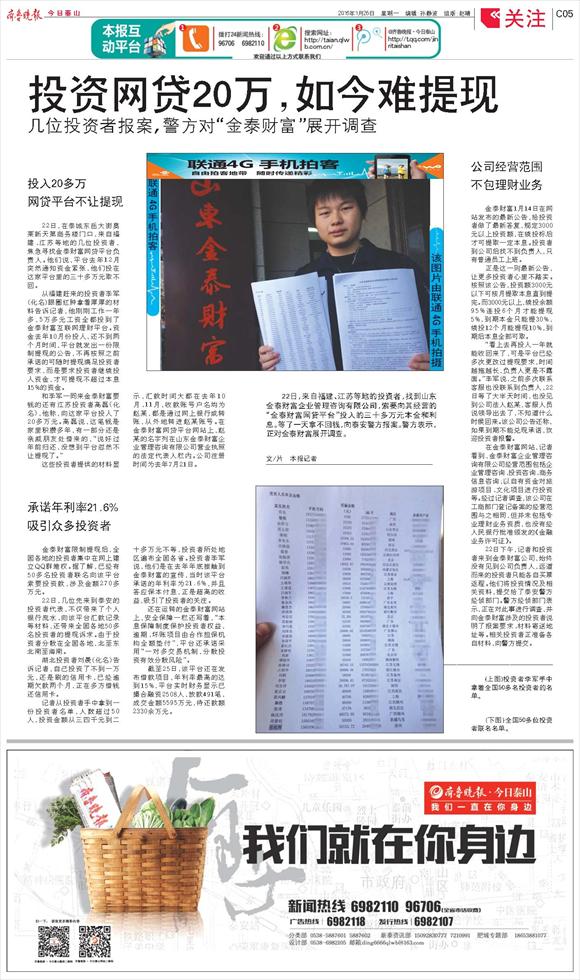 齐鲁晚报 今日泰山
2016年1月26日 星期一 编辑 孙静波 组版 赵晴
关注
C05
本报互动平台
拨打24新闻热线：
96706 6982110
搜索网址：
http://taian.qlwb.com.cn/
@齐鲁晚报·今日泰山
http://t.qq.com/jinritaishan
欢迎通过以上方式联系我们
投资网贷20万，如今难提现
几位投资者报案，警方对“金泰财富”展开调查
投入20多万
网贷平台不让提现
22日，在泰城东岳大街奥
莱新天第商务楼门口，来自福
建、江苏等地的几位投资者，
焦急寻找金泰财富网贷平台负
责人。他们说，平台去年12月
突然通知资金紧张，他们投在
这家平台里的三十多万元取不
回。
从福建赶来的投资者李军
(化名)眼圈红肿拿着厚厚的材
料告诉记者，他刚刚工作一年
多，5万多元工资全都投到了
金泰财富互联网理财平台。资
金去年10月份投入，还不到两
个月时间，平台就发出一份限
制提现的公告，不再按照之前
承诺的可随时提现满足投资者
要求，而是要求投资者继续投
入资金，才可提现不超过本息
15%的资金。
和李军一同来金泰财富要
钱的还有江苏投资者高磊(化
名)，他称，向这家平台投入了
20多万元。高磊说，这笔钱是
家里积攒多年，有一部分还是
亲戚朋友处借来的，“说好过
年前归还，没想到平台迟然不
让提现了。”
这些投资者提供的材料显
示，汇款时间大都在去年10
月、11月，收款账号户名均为
赵某，都是通过网上银行或转
账，从外地转进赵某账号。在
金泰财富网贷平台网站上，赵
某的名字列在山东金泰财富企
业管理咨询有限公司营业执照
的法定代表人栏内。公司注册
时间为去年7月21日。
承诺年利率21.6%
吸引众多投资者
金泰财富限制提现后，全
国各地的投资者集中在网上建
立QQ群维权。据了解，已经有
50多名投资者联名向该平台
索要投资款，涉及金额270多
万元。
22日，几位先来到泰安的
投资者代表，不仅带来了个人
银行流水、向该平台汇款记录
等材料，还带来全国各地50多
名投资者的提现诉求。由于投
资者分散在全国各地，北至东
北南至海南。
湖北投资者刘晨(化名)告
诉记者，自己投资了不到一万
元，还是刷的信用卡，已经逾
期欠款两个月，正在多方借钱
还信用卡。
记者从投资者手中拿到一
份投资者名单，人数超过50
人，投资金额从三四千元到二
十多万元不等，投资者所处地
区遍布全国各省。投资者李军
说，他们是在去年年底接触到
金泰财富的宣传，当时该平台
承诺的年利率为21.6%，并且
答应保本付息，正是超高的收
益，吸引了投资者的关注。
还在运转的金泰财富网站
上，安全保障一栏还写着，“本
息保障制度保护投资者权益，
逾期、坏账项目由合作担保机
构全额垫付”，平台还承诺采
用“一对多交易机制，分散投
资有效分散风险”。
截至25日，该平台还在发
布借款项目，年利率最高的达
到15%，平台实时财务显示已
撮合融资2508人，放款491笔，
成交金额5595万元，待还款额
2330余万元。
联通4G 手机拍客
由自拍客地带 随时传递精彩
联通4G手机拍客
该图片由联通4G手机拍摄
山东金泰财富
22日，来自福建、江苏等地的投资者，找到山东
金泰财富企业管理咨询有限公司，索要向其经营的
“金泰财富网贷平台”投入的三十多万元本金和利
息。等了一天拿不回钱，向泰安警方报案。警方表示，
正对金泰财富展开调查。
文/片 本报记者
公司经营范围
不包理财业务
金泰财富1月14日在网
站发布的最新公告，给投资
者做了最新答复，规定3000
元以上投资额，在续投标后
才可提取一定本息。投资者
到公司后找不到负责人，只
有普通员工上班。
正是这一则最新公告，
让更多投资者心里不踏实。
按照该公告，投资额3000元
以下可按月提取本息直到提
完。而3000元以上，续投余额
95%连投6个月才能提现
5%，到期本金只能提30%，
续投12个月能提现10%，到
期后本息全部可取。
“看上去再投入一年就
能收回来了，可是平台已经
多次更改过提现要求，时间
越拖越长，负责人更是不露
面。”李军说，之前多次联系
客服也没联系到负责人，22
日等了大半天时间，也没见
到公司法人赵某，客服人员
说领导出去了，不知道什么
时候回来。该公司公告还称，
如果到期不能兑现承诺，欢
迎投资者报警。
在金泰财富网站，记者
看到，金泰财富企业管理咨
询有限公司经营范围包括企
业管理咨询、投资咨询、商务
信息咨询；以自有资金对旅
游项目、文化项目进行投资
等。经过记者调查，该公司在
工商部门登记备案的经营范
围与之相同，但并未包括专
业理财业务资质，也没有经
人民银行批准颁发的《金融
业务许可证》。
22日下午，记者和投资
者来到金泰财富公司，始终
没有见到公司负责人，远道
而来的投资者只能各自买票
返程。他们将投资情况及相
关资料，提交给了泰安警方
经侦部门。警方经侦部门表
示，正在对此事进行调查，并
向金泰财富涉及的投资者说
明了报案要求、材料邮送地
址等。相关投资者正准备各
自材料，向警方提交。
(上图)投资者李军手中
拿着全国50多名投资者的名
单。
(下图)全国50多位投资
者联名名单。
齐鲁晚报·今日泰山
我们一直在你身边
我们就在你身边
新闻热线 6982110 96706(全省市话收费)
广告热线：6982118 发行热线：6982107
分类部 0538-5887601 5887602 新泰资讯部 15092830777 7210991 肥城专题部 18653881077
设计部 0538-6982205 邮箱ding6666qlwb@163.com